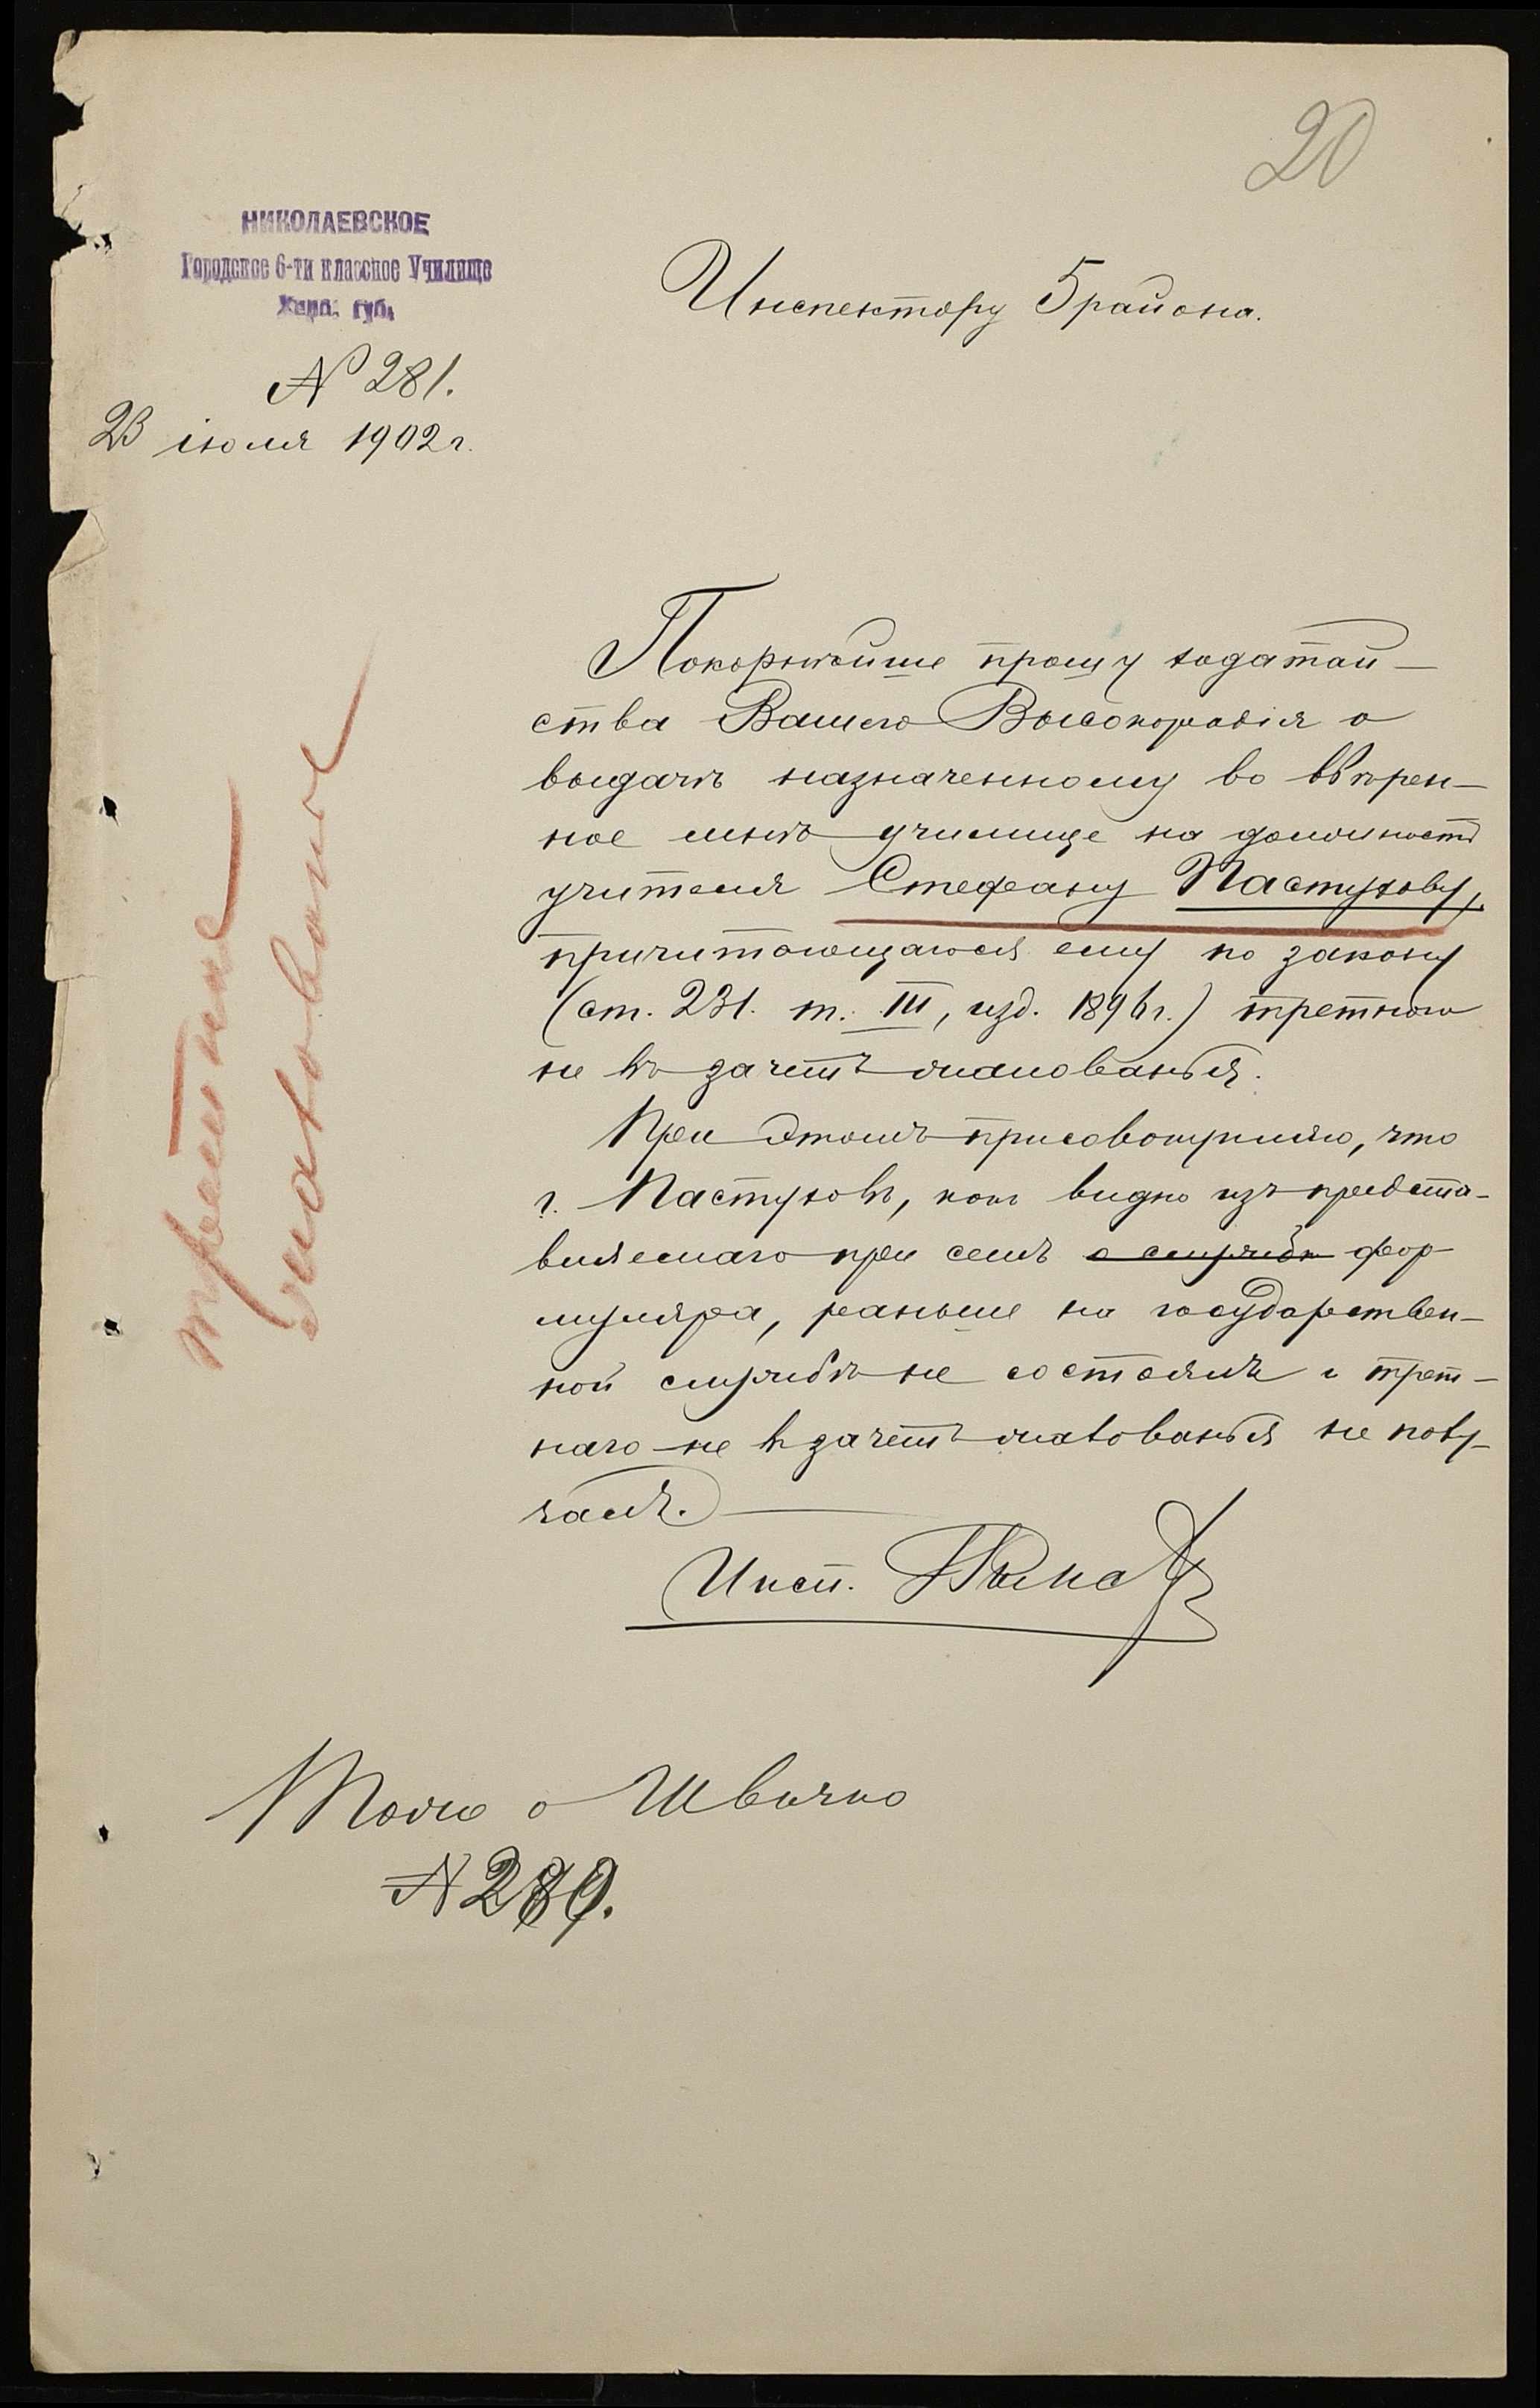 20
НИКОЛАЕВСКОЕ
Городское 6-ти классное Училище
Херс. губ.
№ 281.
23 іюля 1902 г.
Инспектору 5 района.
Покорнѣйше прошу ходатай-
ства Вашего Высокородія о
выдачѣ назначенному во ввѣрен-
ное мнѣ училище на должность
учителя Стефану Пастухову,
причитающагося ему по закону
(ст. 231. т. III, изд. 1896 г.) третного
не въ зачетъ жалованья.
При этомъ присовокупляю, что
г. Пастуховъ, какъ видно изъ предста-
вляемаго при семъ о службѣ фор-
муляра, раньше на государствен-
ной службѣ не состоялъ и трет-
наго не въ зачетъ жалованья не полу-
чалъ.
Инсп.
третное
жалованье
Тоже о Швычко
№ 280.